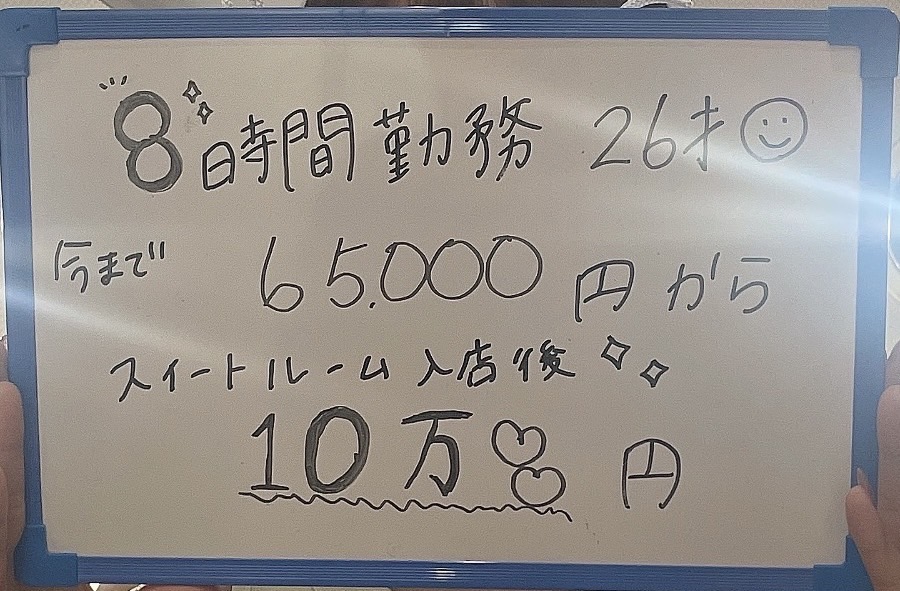 8時間勤務 26才
今まで 65.000円から
スイートルーム入店後
10万円